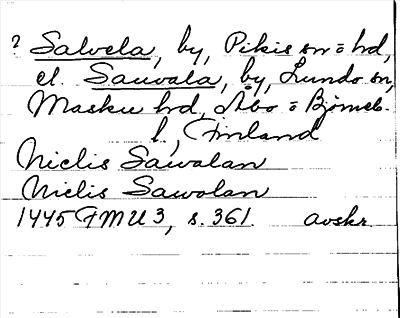 ? Salvela, by, Pikis sn o hd,
el. Sauvala, by, Lundo sn,
Masku hd, Åbo o Björneb.
l, Finland
Niclis Sawalan
Niclis Sawolan
1445 FMU 3, s. 361. avskr.